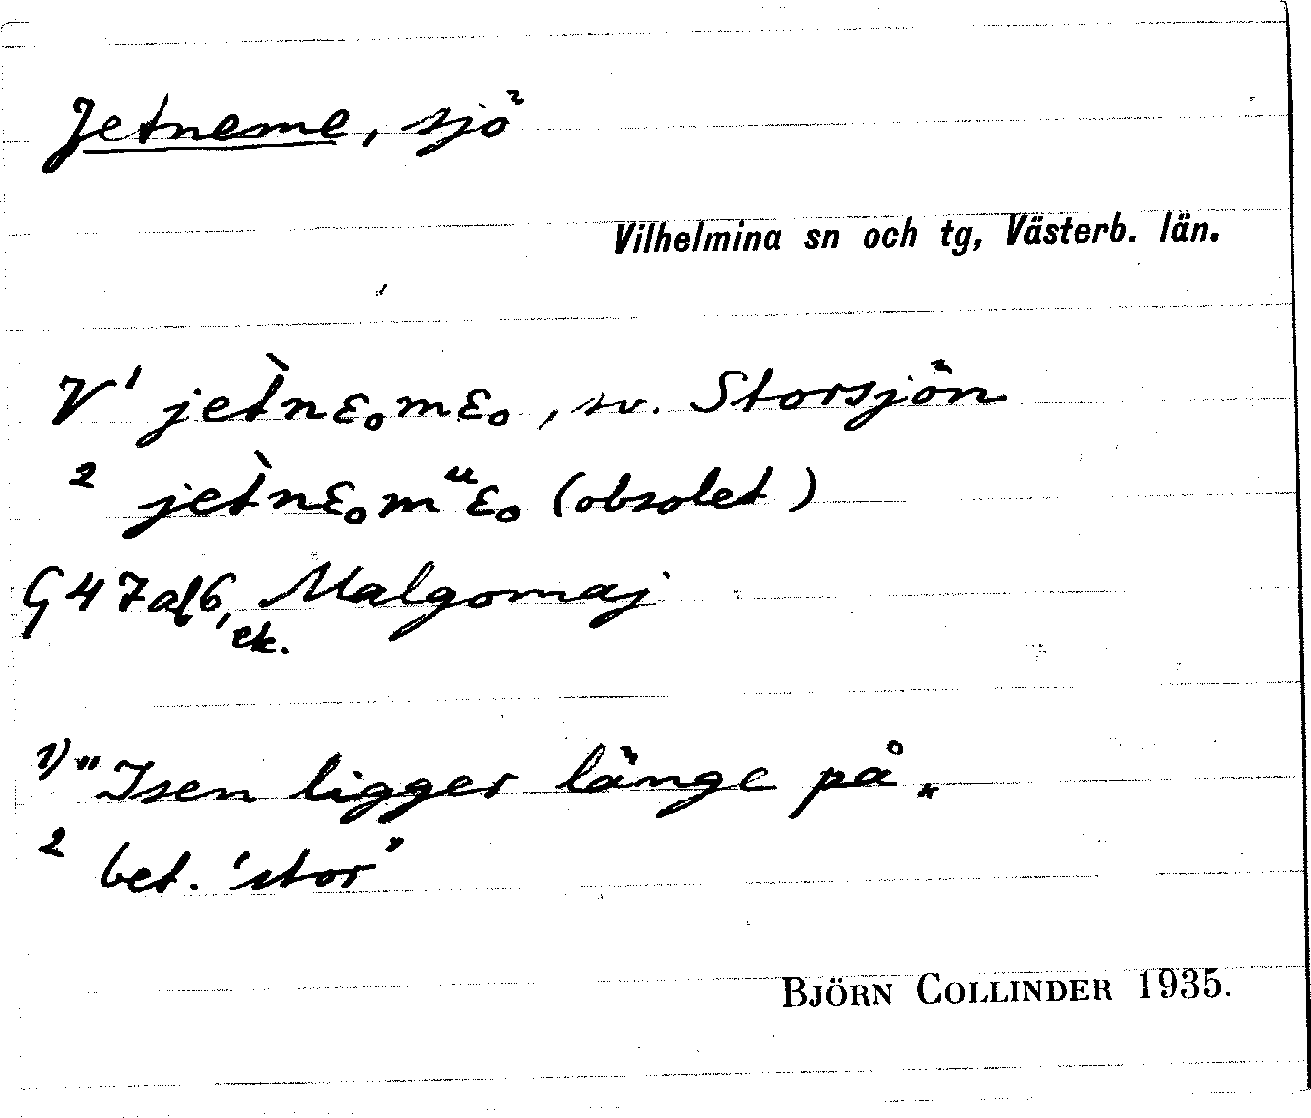 Jetneme, sjö
Vilhelmina sn och tg, Västerb. län.
V¹ jet̀nɛₒmɛₒ, sv. Storsjön
² jet̀nɛₒmᵘɛₒ (obsolet)
G 47 af6, Malgomaj
ek.
1) "Isen ligger länge på„
² bet. 'stor"
BJÖRN COLLINDER 1935.